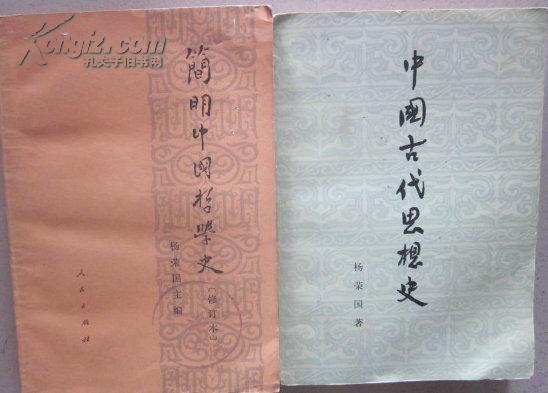 Kongfz.com
孔夫子旧书网
簡明中国哲學史
(修订本)
杨荣国主编
人民出版社
中國古代思想史
杨荣国著